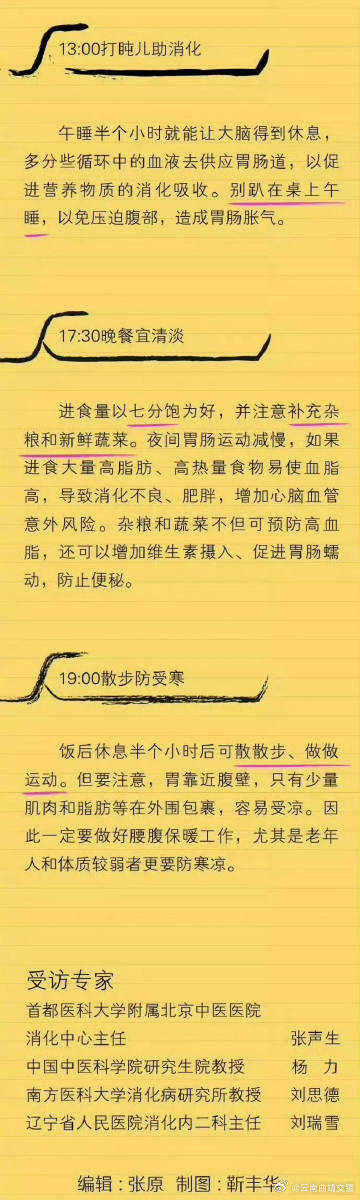 13:00打盹儿助消化
午睡半个小时就能让大脑得到休息，
多分些循环中的血液去供应胃肠道，以促
进营养物质的消化吸收。别趴在桌上午
睡，以免压迫腹部，造成胃肠胀气。
17:30晚餐宜清淡
进食量以七分饱为好，并注意补充杂
粮和新鲜蔬菜。夜间胃肠运动减慢，如果
进食大量高脂肪、高热量食物易使血脂
高，导致消化不良、肥胖，增加心脑血管
意外风险。杂粮和蔬菜不但可预防高血
脂，还可以增加维生素摄入、促进胃肠蠕
动，防止便秘。
19:00散步防受寒
饭后休息半个小时后可散散步、做做
运动。但要注意，胃靠近腹壁，只有少量
肌肉和脂肪等在外围包裹，容易受凉。因
此一定要做好腰腹保暖工作，尤其是老年
人和体质较弱者更要防寒凉。
受访专家
首都医科大学附属北京中医医院
消化中心主任 张声生
中国中医科学院研究生院教授 杨 力
南方医科大学消化病研究所教授 刘思德
辽宁省人民医院消化内二科主任 刘瑞雪
编辑：张原 制图：靳丰华
@云南曲靖交警